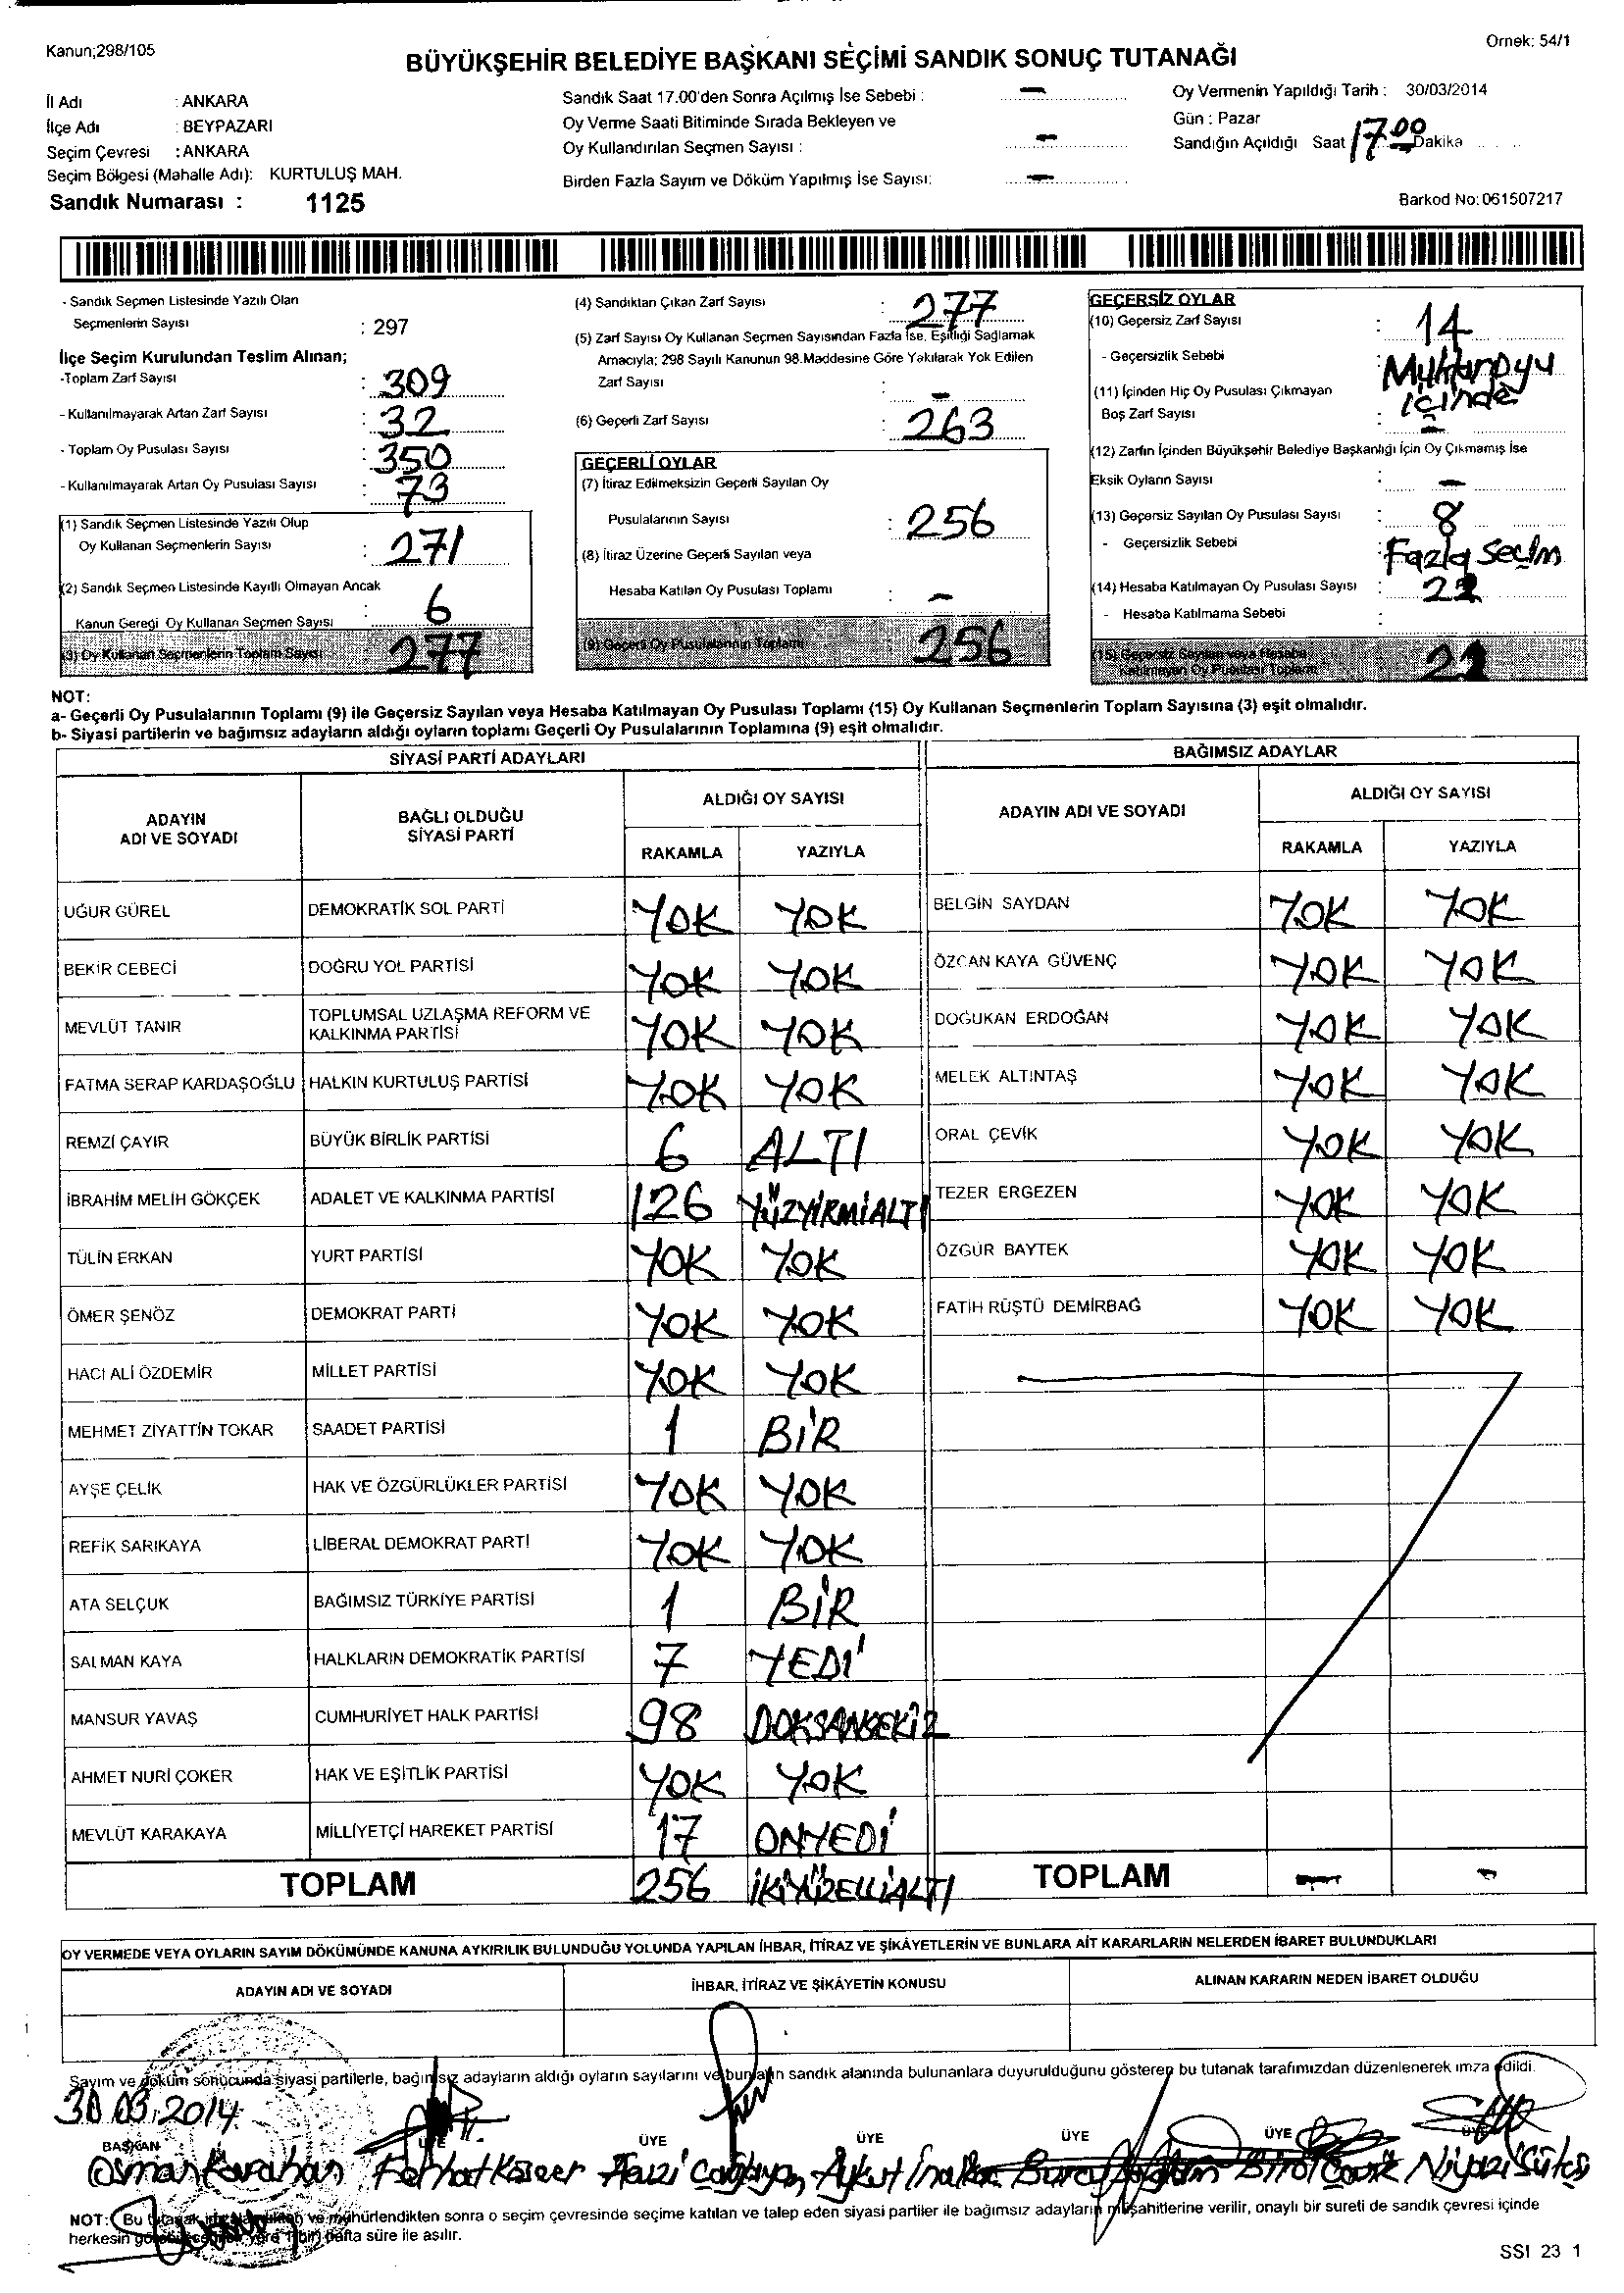 Kanun;298/105
Örnek: 54/1
BÜYÜKŞEHİR BELEDİYE BAŞKANI SEÇİMİ SANDIK SONUÇ TUTANAĞI
İl Adı : ANKARA
İlçe Adı : BEYPAZARI
Seçim Çevresi : ANKARA
Seçim Bölgesi (Mahalle Adı): KURTULUŞ MAH.
Sandık Numarası : 1125
Sandık Saat 17.00'den Sonra Açılmış İse Sebebi : -
Oy Verme Saati Bitiminde Sırada Bekleyen ve
Oy Kullandırılan Seçmen Sayısı : -
Birden Fazla Sayım ve Döküm Yapılmış İse Sayısı: -
Oy Vermenin Yapıldığı Tarih : 30/03/2014
Gün : Pazar
Sandığın Açıldığı Saat 17.00 Dakika
Barkod No: 061507217
- Sandık Seçmen Listesinde Yazılı Olan
Seçmenlerin Sayısı : 297
İlçe Seçim Kurulundan Teslim Alınan;
-Toplam Zarf Sayısı : 309
- Kullanılmayarak Artan Zarf Sayısı : 32
- Toplam Oy Pusulası Sayısı : 350
- Kullanılmayarak Artan Oy Pusulası Sayısı : 73
(1) Sandık Seçmen Listesinde Yazılı Olup
Oy Kullanan Seçmenlerin Sayısı : 271
(2) Sandık Seçmen Listesinde Kayıtlı Olmayan Ancak
Kanun Gereği Oy Kullanan Seçmen Sayısı : 6
(3) Oy Kullanan Seçmenlerin Toplam Sayısı : 277
(4) Sandıktan Çıkan Zarf Sayısı : 277
(5) Zarf Sayısı Oy Kullanan Seçmen Sayısından Fazla İse, Eşitliği Sağlamak
Amacıyla; 298 Sayılı Kanunun 98.Maddesine Göre Yakılarak Yok Edilen
Zarf Sayısı : -
(6) Geçerli Zarf Sayısı : 263
GEÇERLİ OYLAR
(7) İtiraz Edilmeksizin Geçerli Sayılan Oy
Pusulalarının Sayısı : 256
(8) İtiraz Üzerine Geçerli Sayılan veya
Hesaba Katılan Oy Pusulası Toplamı : -
(9) Geçerli Oy Pusulalarının Toplamı : 256
GEÇERSİZ OYLAR
(10) Geçersiz Zarf Sayısı : 14
- Geçersizlik Sebebi : Muhtaroyu
içinde
(11) İçinden Hiç Oy Pusulası Çıkmayan
Boş Zarf Sayısı : -
(12) Zarfın İçinden Büyükşehir Belediye Başkanlığı İçin Oy Çıkmamış İse
Eksik Oyların Sayısı : -
(13) Geçersiz Sayılan Oy Pusulası Sayısı : 8
- Geçersizlik Sebebi : Fazla Seçim
(14) Hesaba Katılmayan Oy Pusulası Sayısı :
- Hesaba Katılmama Sebebi :
(15) Geçersiz Sayılan veya Hesaba
Katılmayan Oy Pusulası Toplamı
NOT:
a- Geçerli Oy Pusulalarının Toplamı (9) ile Geçersiz Sayılan veya Hesaba Katılmayan Oy Pusulası Toplamı (15) Oy Kullanan Seçmenlerin Toplam Sayısına (3) eşit olmalıdır.
b- Siyasi partilerin ve bağımsız adayların aldığı oyların toplamı Geçerli Oy Pusulalarının Toplamına (9) eşit olmalıdır.
SİYASİ PARTİ ADAYLARI
ADAYIN
ADI VE SOYADI
BAĞLI OLDUĞU
SİYASİ PARTİ
ALDIĞI OY SAYISI
RAKAMLA YAZIYLA
UĞUR GÜREL DEMOKRATİK SOL PARTİ YOK YOK
BEKİR CEBECİ DOĞRU YOL PARTİSİ YOK YOK
MEVLÜT TANIR TOPLUMSAL UZLAŞMA REFORM VE
KALKINMA PARTİSİ YOK YOK
FATMA SERAP KARDAŞOĞLU HALKIN KURTULUŞ PARTİSİ YOK YOK
REMZİ ÇAYIR BÜYÜK BİRLİK PARTİSİ 6 ALTI
İBRAHİM MELİH GÖKÇEK ADALET VE KALKINMA PARTİSİ 126 YÜZYİRMİALTI
TÜLİN ERKAN YURT PARTİSİ YOK YOK
ÖMER ŞENÖZ DEMOKRAT PARTİ YOK YOK
HACI ALİ ÖZDEMİR MİLLET PARTİSİ YOK YOK
MEHMET ZİYATTİN TOKAR SAADET PARTİSİ 1 BİR
AYŞE ÇELİK HAK VE ÖZGÜRLÜKLER PARTİSİ YOK YOK
REFİK SARIKAYA LİBERAL DEMOKRAT PARTİ YOK YOK
ATA SELÇUK BAĞIMSIZ TÜRKİYE PARTİSİ 1 BİR
SALMAN KAYA HALKLARIN DEMOKRATİK PARTİSİ 7 YEDİ
MANSUR YAVAŞ CUMHURİYET HALK PARTİSİ 98 DOKSANSEKİZ
AHMET NURİ ÇOKER HAK VE EŞİTLİK PARTİSİ YOK YOK
MEVLÜT KARAKAYA MİLLİYETÇİ HAREKET PARTİSİ 17 ONYEDİ
TOPLAM 256 İKİYÜZELLİALTI
BAĞIMSIZ ADAYLAR
ADAYIN ADI VE SOYADI
ALDIĞI OY SAYISI
RAKAMLA YAZIYLA
BELGİN SAYDAN YOK YOK
ÖZCAN KAYA GÜVENÇ YOK YOK
DOĞUKAN ERDOĞAN YOK YOK
MELEK ALTINTAŞ YOK YOK
ORAL ÇEVİK YOK YOK
TEZER ERGEZEN YOK YOK
ÖZGÜR BAYTEK YOK YOK
FATİH RÜŞTÜ DEMİRBAĞ YOK YOK
TOPLAM - -
OY VERMEDE VEYA OYLARIN SAYIM DÖKÜMÜNDE KANUNA AYKIRILIK BULUNDUĞU YOLUNDA YAPILAN İHBAR, İTİRAZ VE ŞİKÂYETLERİN VE BUNLARA AİT KARARLARIN NELERDEN İBARET BULUNDUKLARI
ADAYIN ADI VE SOYADI
İHBAR, İTİRAZ VE ŞİKÂYETİN KONUSU
ALINAN KARARIN NEDEN İBARET OLDUĞU
Sayım ve döküm sonucunda siyasi partilerle, bağımsız adayların aldığı oyların sayılarını ve bunların sandık alanında bulunanlara duyurulduğunu gösteren bu tutanak tarafımızdan düzenlenerek imza edildi.
30.03.2014
BAŞKAN ÜYE ÜYE ÜYE ÜYE ÜYE ÜYE
Osman Karahan Ferhat Fevzi Aykut Burak Birol Niyazi
NOT: Bu tutanak imzalandıktan ve mühürlendikten sonra o seçim çevresinde seçime katılan ve talep eden siyasi partiler ile bağımsız adayların müşahitlerine verilir, onaylı bir sureti de sandık çevresi içinde
herkesin görebileceği bir yere 1 bir hafta süre ile asılır.
SSI 23 1